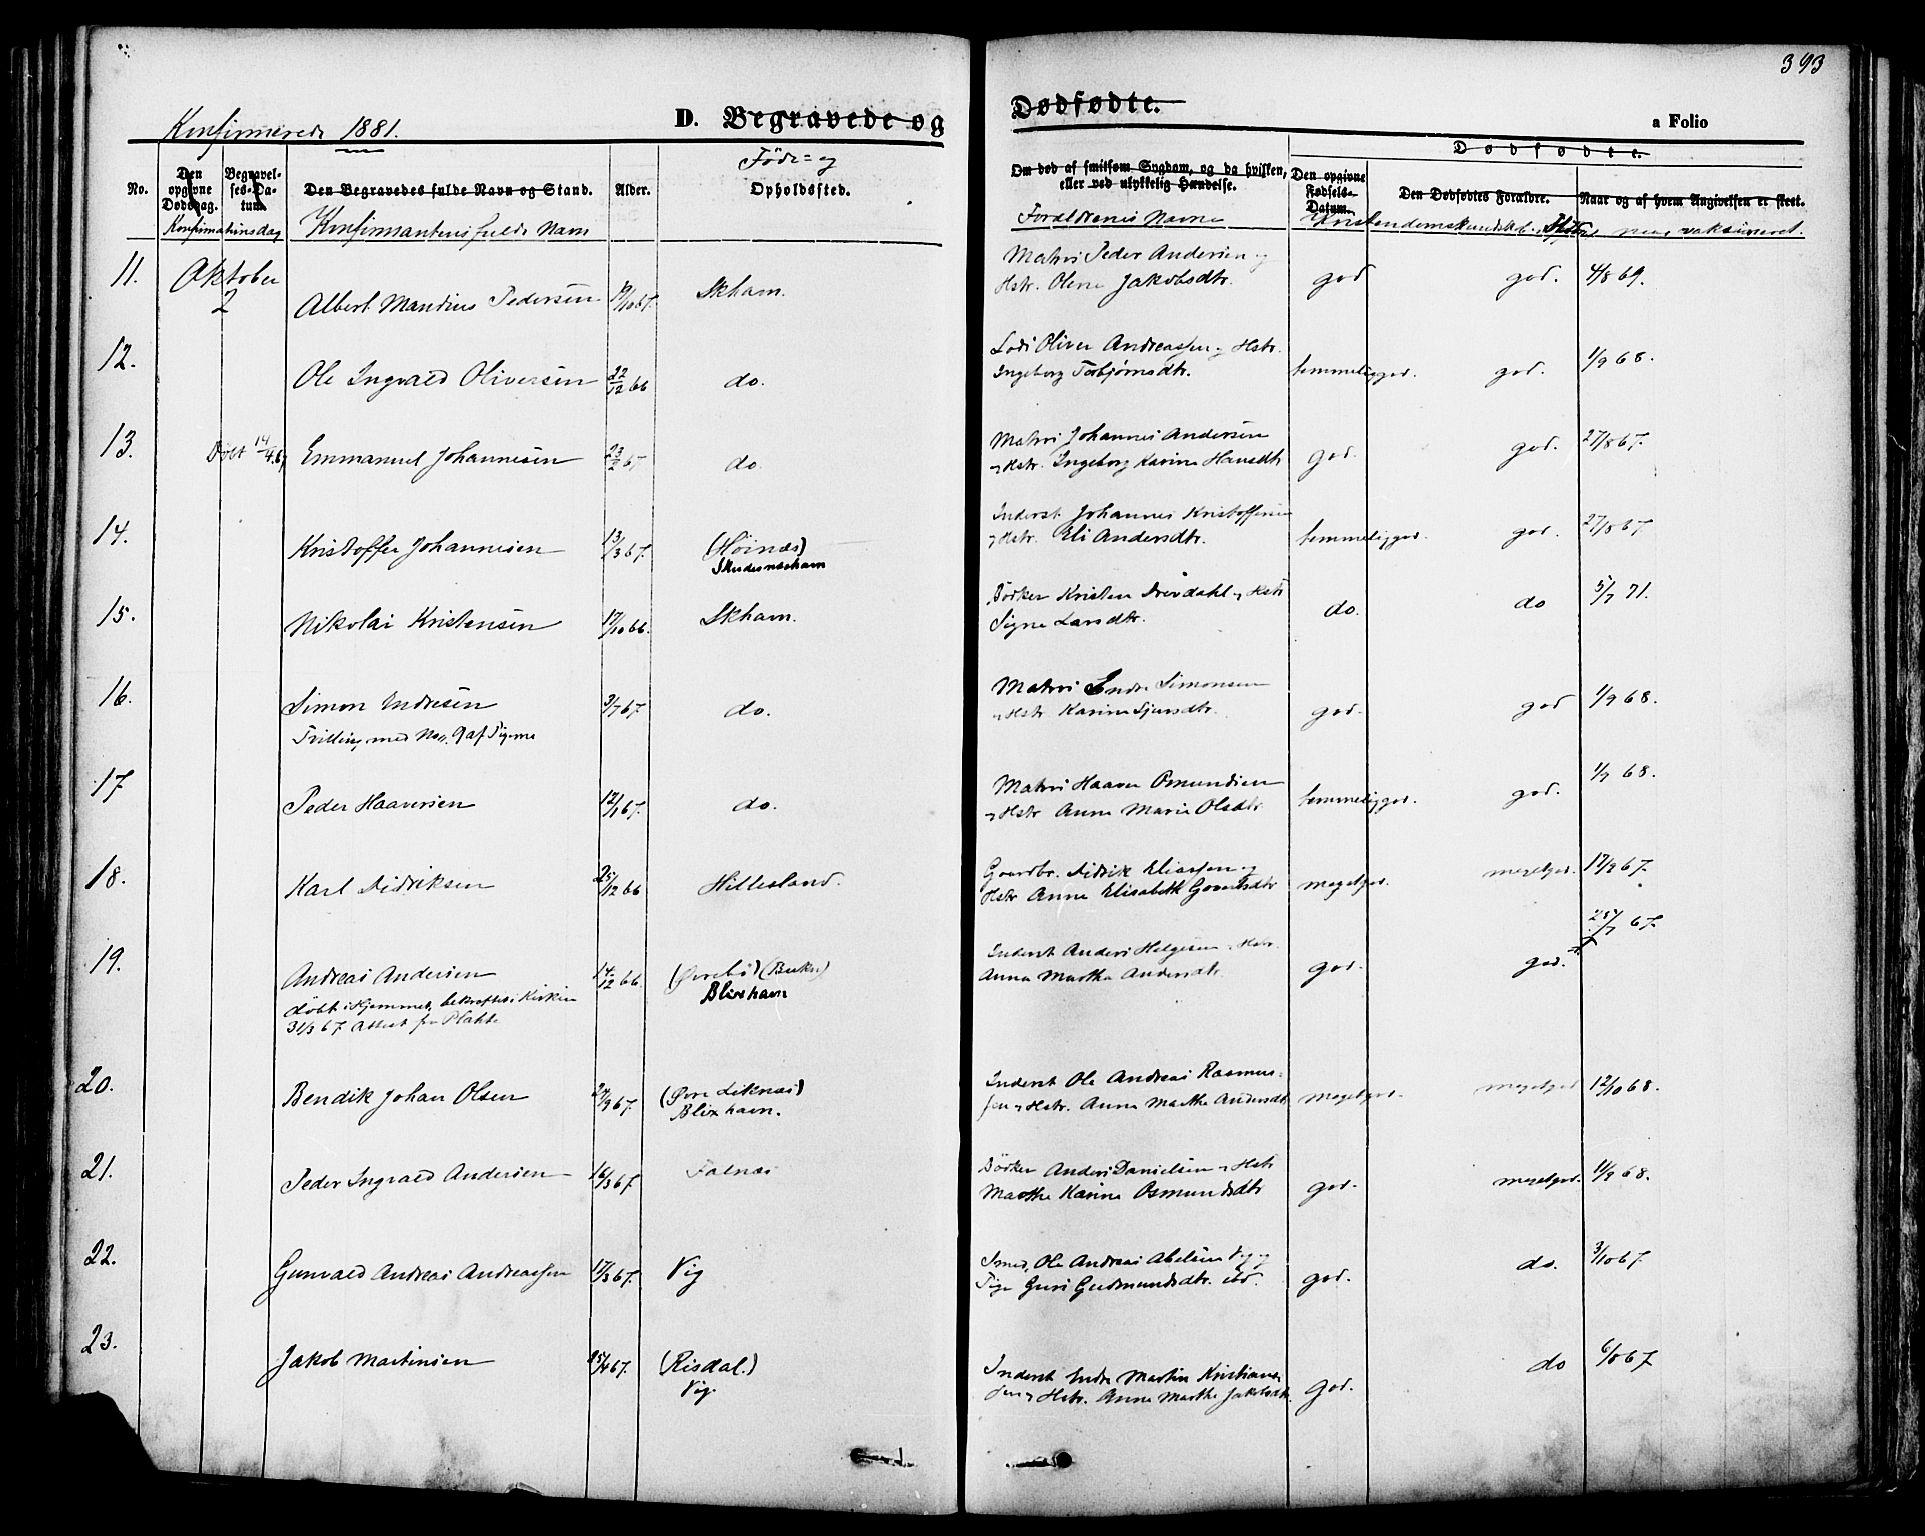 393
Konfirmerede 1881.
D. Begravede og Dødfødte.
a Folio
No.
Den opgivne Dødsdag.
Begravelses-Datum.
Konfirmationsdag
Den Begravedes fulde Navn og Stand.
Konfirmantens fulde Navn
Alder.
Føde= og
Opholdssted.
Om død af smitsom Sygdom, og da hvilken, eller ved ulykkelig Hændelse.
Forældrenes Navne
Dødfødte.
Den opgivne Fødsels-Datum.
Den Dødfødtes Forældre.
Naar og af hvem Angivelsen er skeet.
Kristendomskundskab. naar vaksineret.
11. Oktober 2 Albert Mandius Pedersen 19/10 67. Skhavn. Matros Peder Andersen og
Hstr. Olene Jakobsdtr. god god. 4/8 69.
12. Ole Ingvald Oliversen 22/12 66 do. Lods Oliver Andreassen og Hstr.
Ingeborg Torbjørnsdtr. temmelig god. god. 1/9 68.
13. Døbt 14/4 67 Emmanuel Johannesen 23/2 67 do. Matros Johannes Andersen
og Hstr. Ingeborg Karine Hansdtr god. god. 27/8 67.
14. Kristoffer Johannesen 13/3 67. (Høinæs) Inderst Johannes Kristoffersen
Skudesneshavn og Hstr. Eli Andersdtr. temmelig god. god. 27/8 67.
15. Nikolai Kristensen 17/10 66. Skhavn. Bødker Kristen Drevdahl og Hstr
Signe Larsdtr. do. do 5/7 71.
16. Simon Endresen 3/7 67. do. Matros Endre Simonsen
Tvilling med No. 9 af Pigerne og Hstr Karine Sjursdtr. god. god 1/9 68.
17 Peder Haaversen 12/1 67. do. Matros Haaver Osmundsen
og Hstr Anne Marie Olsdtr temmelig god. god. 1/7 68.
18. Karl Didriksen 25/12 66 Hillesland. Gaardbr. Didrik Eliassen og
Hstr Anne Elisabeth Govertsdtr meget god. meget god. 17/9 67.
19. Andreas Andersen 14/12 66 (Øvrebø) (Bukn) Inderst Anders Helgesen og Hstr.
Døbt i Hjemmet, bekræftet i Kirken Blixhavn Anna Martha Andersdtr. god. god. 25/7 67
31/3 67. Attest fra
20. Bendik Johan Olsen 24/9 67. (Øvre Liknæs) Inderst Ole Andreas Rasmus=
Blixhavn. sen og Hstr. Anne Marthe Andersdtr meget god. meget god 12/10 68.
21. Peder Ingvald Andersen 16/3 67 Falnæs Bødker Anders Danielsen og Hstr
Marthe Karine Osmundsdtr god. meget god. 11/9 68.
22. Gunvald Andreas Andreassen 17/3 67. Vig Smed, Ole Andreas Abelsen Vig og
Pige Guri Gudmundsdtr. ibd. god. do. 3/10 67.
23. Jakob Martinsen 25/4 67. (Risdal.) Inderst Endre Martin Kristian=
Vig. sen og Hstr. Anne Marthe Jakobsdtr. god. do 6/10 67